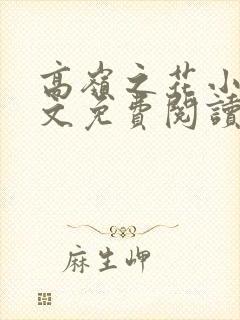 高嶺之花小
文免費閱讀
麻生岬